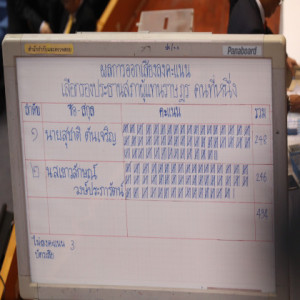 Panaboard
ผลการออกเสียงลงคะแนน
เลือกรองประธานสภาผู้แทนราษฎร คนที่หนึ่ง
ลำดับ ชื่อ-สกุล คะแนน รวม
๑ นายสุชาติ ตันเจริญ 248
๒ น.ส.เยาวลักษณ์ วงษ์ประภารัตน์ 246
494
ไม่ลงคะแนน 3
บัตรเสีย